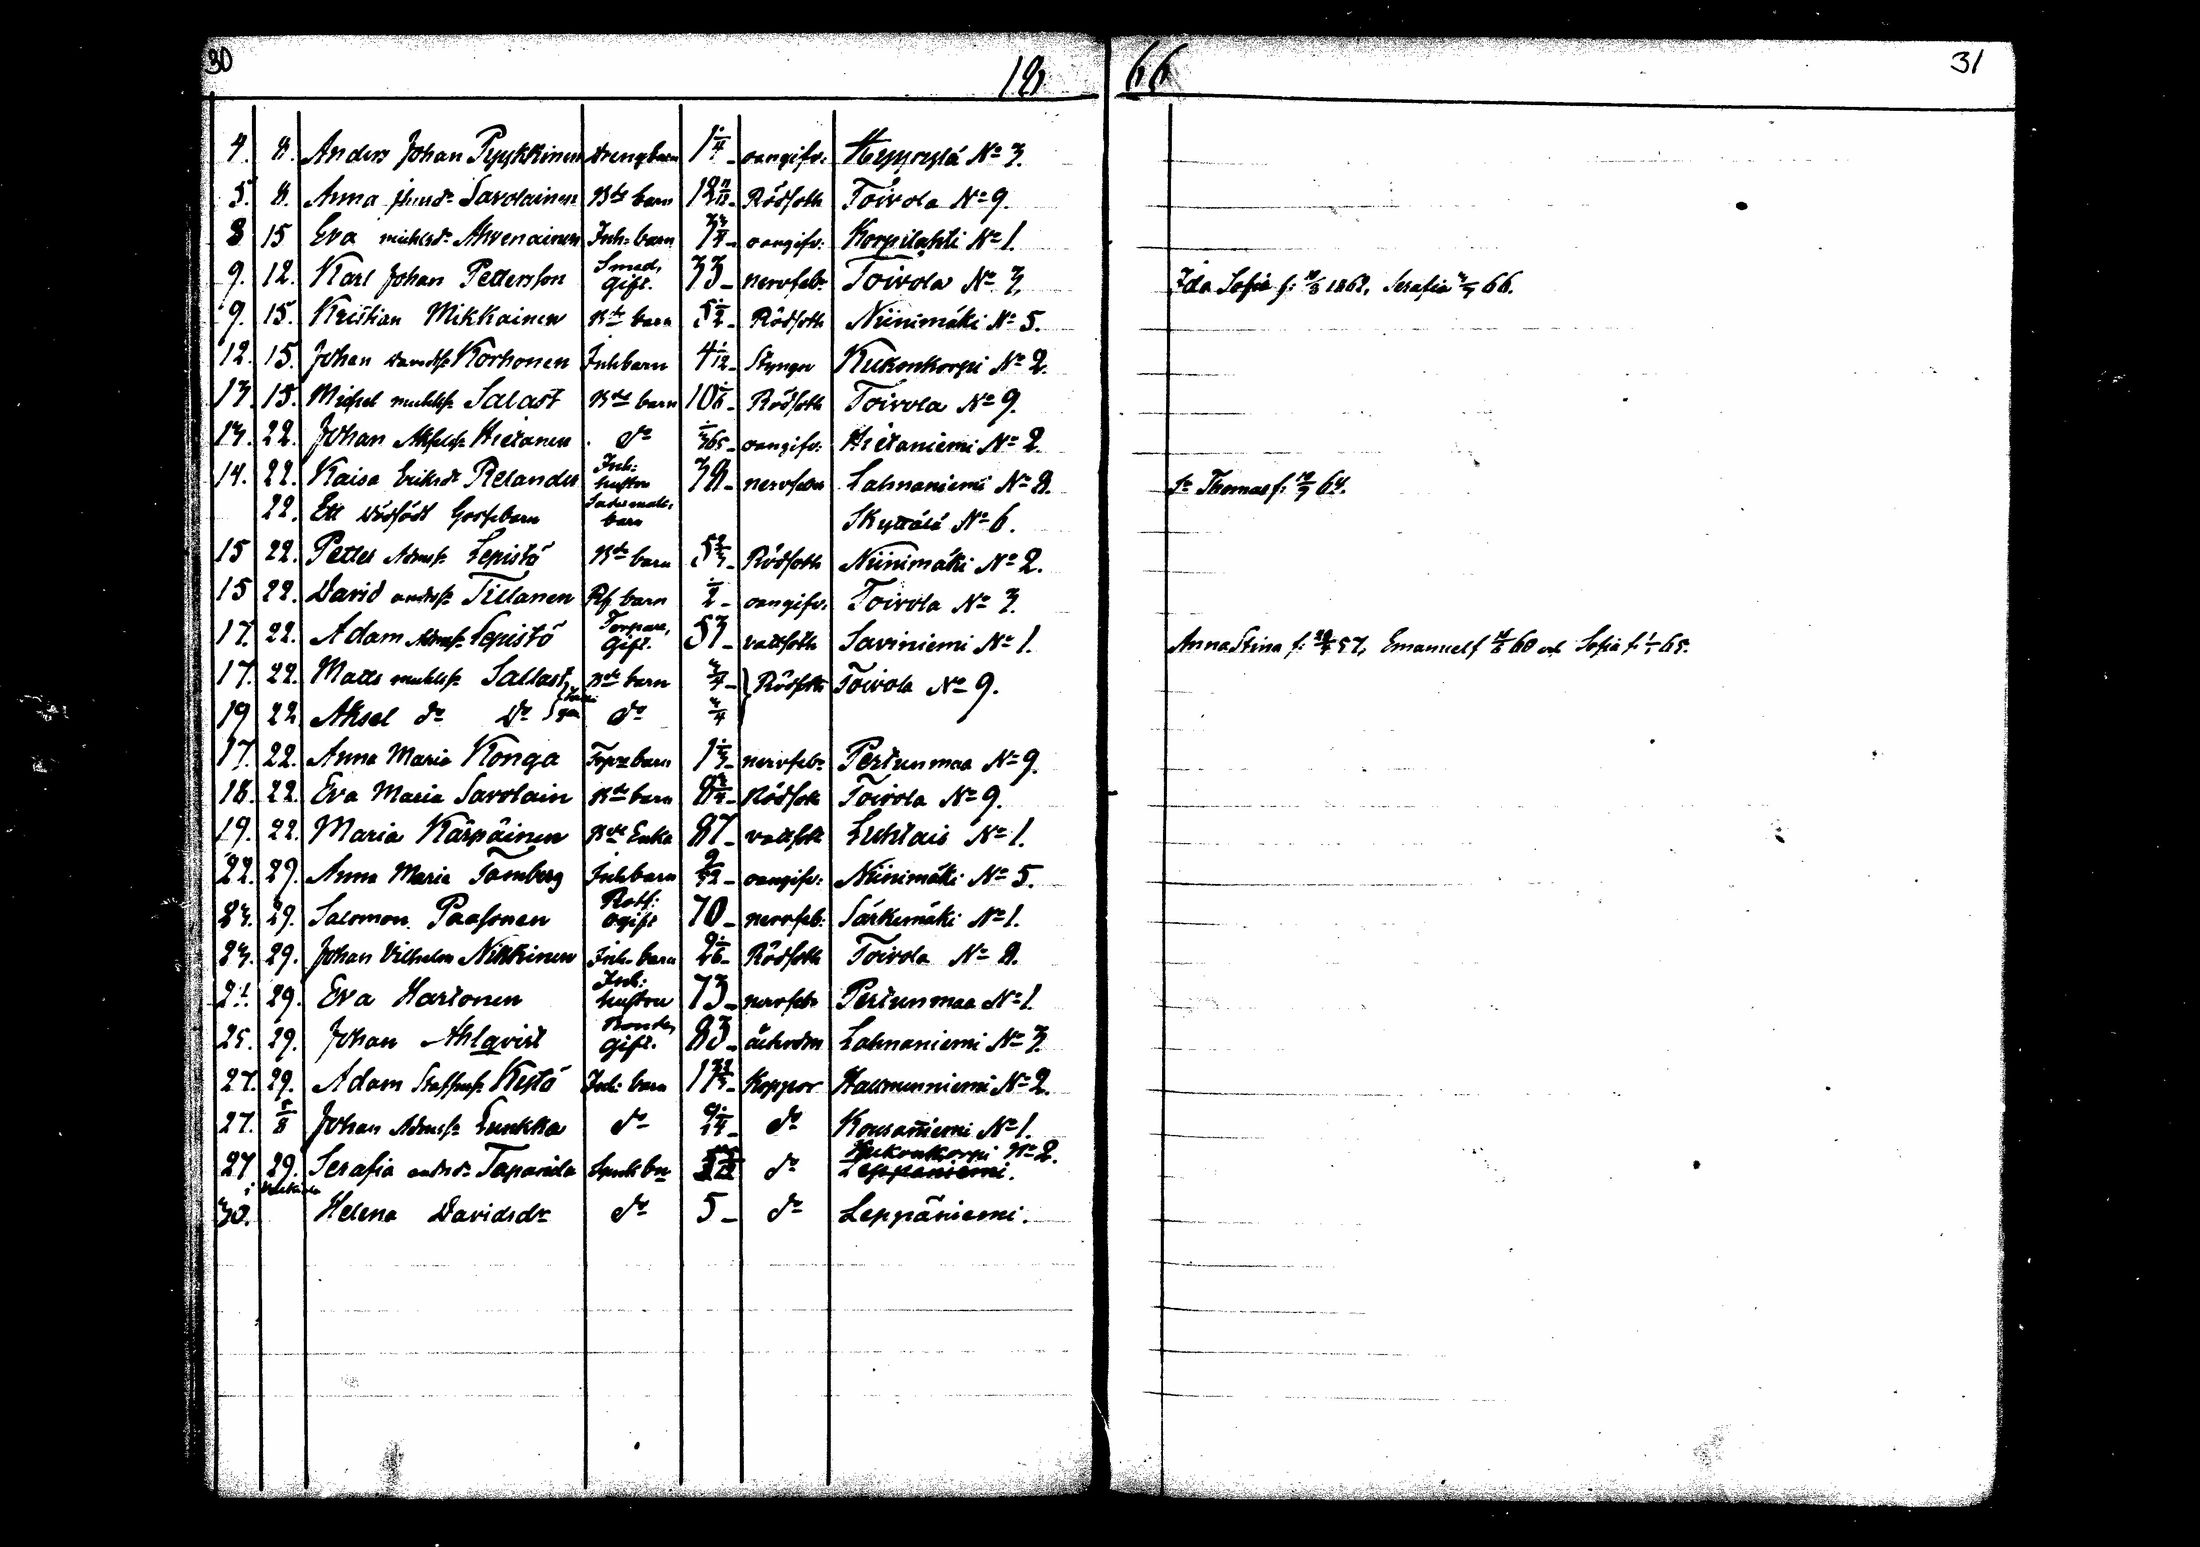 30
18 66
31
4. 8. Anders Johan Pyykkinen Drengbarn 1 1/4 oangifv: Heppoylä No 3.
5. 8. Anna Savolainen Bde barn 12 Rödsoth Toivola No 9.
8 15 Eva michlsdr Ahvenainen Inh: barn 3/4 oangifv: Korpilahti No 1.
9. 12. Karl Johan Pettersson Smed, gift. 33 nervfebr Toivola No 3. Ida Sofia f: 10/8 1862, Serafia 66.
9. 15. Kristian Mikkainen Bde barn 5 1/2 Rödsoth Niinimäki No 5.
12. 15. Johan Davidss: Korhonen Inh barn 4 1/12 Styngn Kukonkorpi No 2.
13. 15. Michel michlss: Salast Bde barn 10 1/6 Rödsoth Toivola No 9.
13. 22. Johan Hietanen do oangifv: Hietaniemi No 2.
14. 22. Kaisa Eriksdr Relander Inh: hustru 38 nervfeber Lahnaniemi No 8. Thomas f: 64.
22. Ett dödfödt Gossebarn barn Skyttälä No 6.
15 22. Petter Admss: Lepistö Bde barn Rödsoth Niinimäki No 2.
15 22. David andrss: Tillanen barn 1/2 oangifv: Toivola No 3.
17. 22. Adam Admss: Lepistö Torpare, gift. 57 vattsoth Saviniemi No 1. Anna Stina f: 57, Emanuel f 60 och Sofia f: 1/1 65.
17. 22. Matts michlss: Sallast, Bde barn 3/4 Rödsoth Toivola No 9.
19 22 Aksel do Do do 3/4
17. 22. Anna Maria Konga Torp barn 1 1/3 nervfebr Pertunmaa No 9.
18. 22. Eva Maria Savolain Bde barn Rödsoth Toivola No 9.
19. 22. Maria Kärpäinen Bde Enka 87 vattsoth Luhtais No 1.
22. 29. Anna Maria Tamberg Inh barn 2/52 oangifv: Niinimäki No 5.
23. 29. Salomon Paasonen Roth: ogift 70 nervfeb: Särkimäki No 1.
23. 29. Johan Vilhelm Nikkinen Inh. barn 2 1/6 Rödsoth Toivola No 8.
24. 29. Eva Hartonen Inh: hustru 73 nervfebr Pertunmaa No 1.
25. 29. Johan Ahlqvist Bonde, gift. 83 ålderdm Lahnaniemi No 3.
27. 29. Adam Staffnss: Kestö Inh: barn Koppor Haurunniemi No 2.
27. 5/8 Johan Admss: Lunkka do do Kousaniemi No 1.
27 29. Serafia andrsdr do Kukonkorpi No 2. Leppäniemi.
30. Helena Davidsdr do 5 do Leppäniemi.